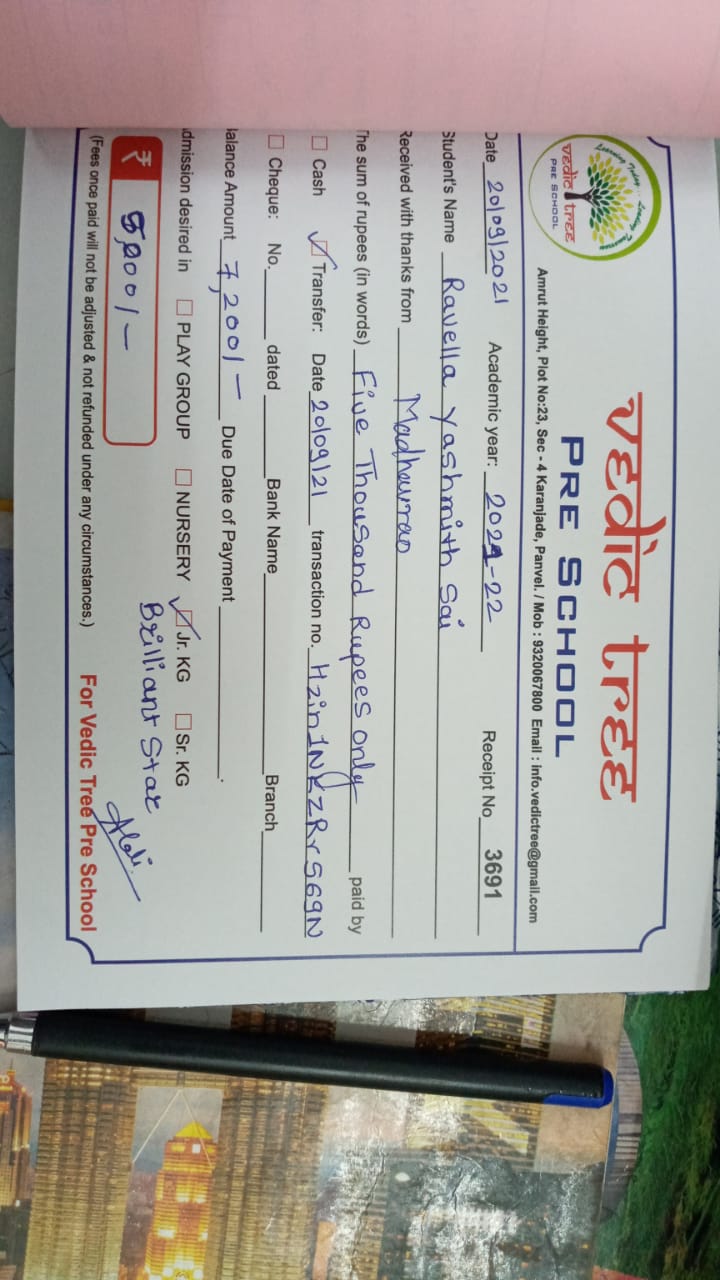 Learning Today... Leading Tomorrow
vedic tree
PRE SCHOOL
vedic tree
PRE SCHOOL
Amrut Height, Plot No:23, Sec - 4 Karanjade, Panvel. / Mob : 9320067800 Email : info.vedictree@gmail.com
Date 20/09/2021 Academic year: 2021-22 Receipt No 3691
Student's Name Ravella Yashmith Sai
Received with thanks from Madhavrao
The sum of rupees (in words) Five Thousand Rupees only paid by
Cash Transfer: Date 20/09/21 transaction no.
Cheque: No. dated Bank Name Branch
alance Amount 7,200/- Due Date of Payment
dmission desired in PLAY GROUP NURSERY Jr. KG Sr. KG
Brilliant Star
₹ 5,000/-
(Fees once paid will not be adjusted & not refunded under any circumstances.) For Vedic Tree Pre School